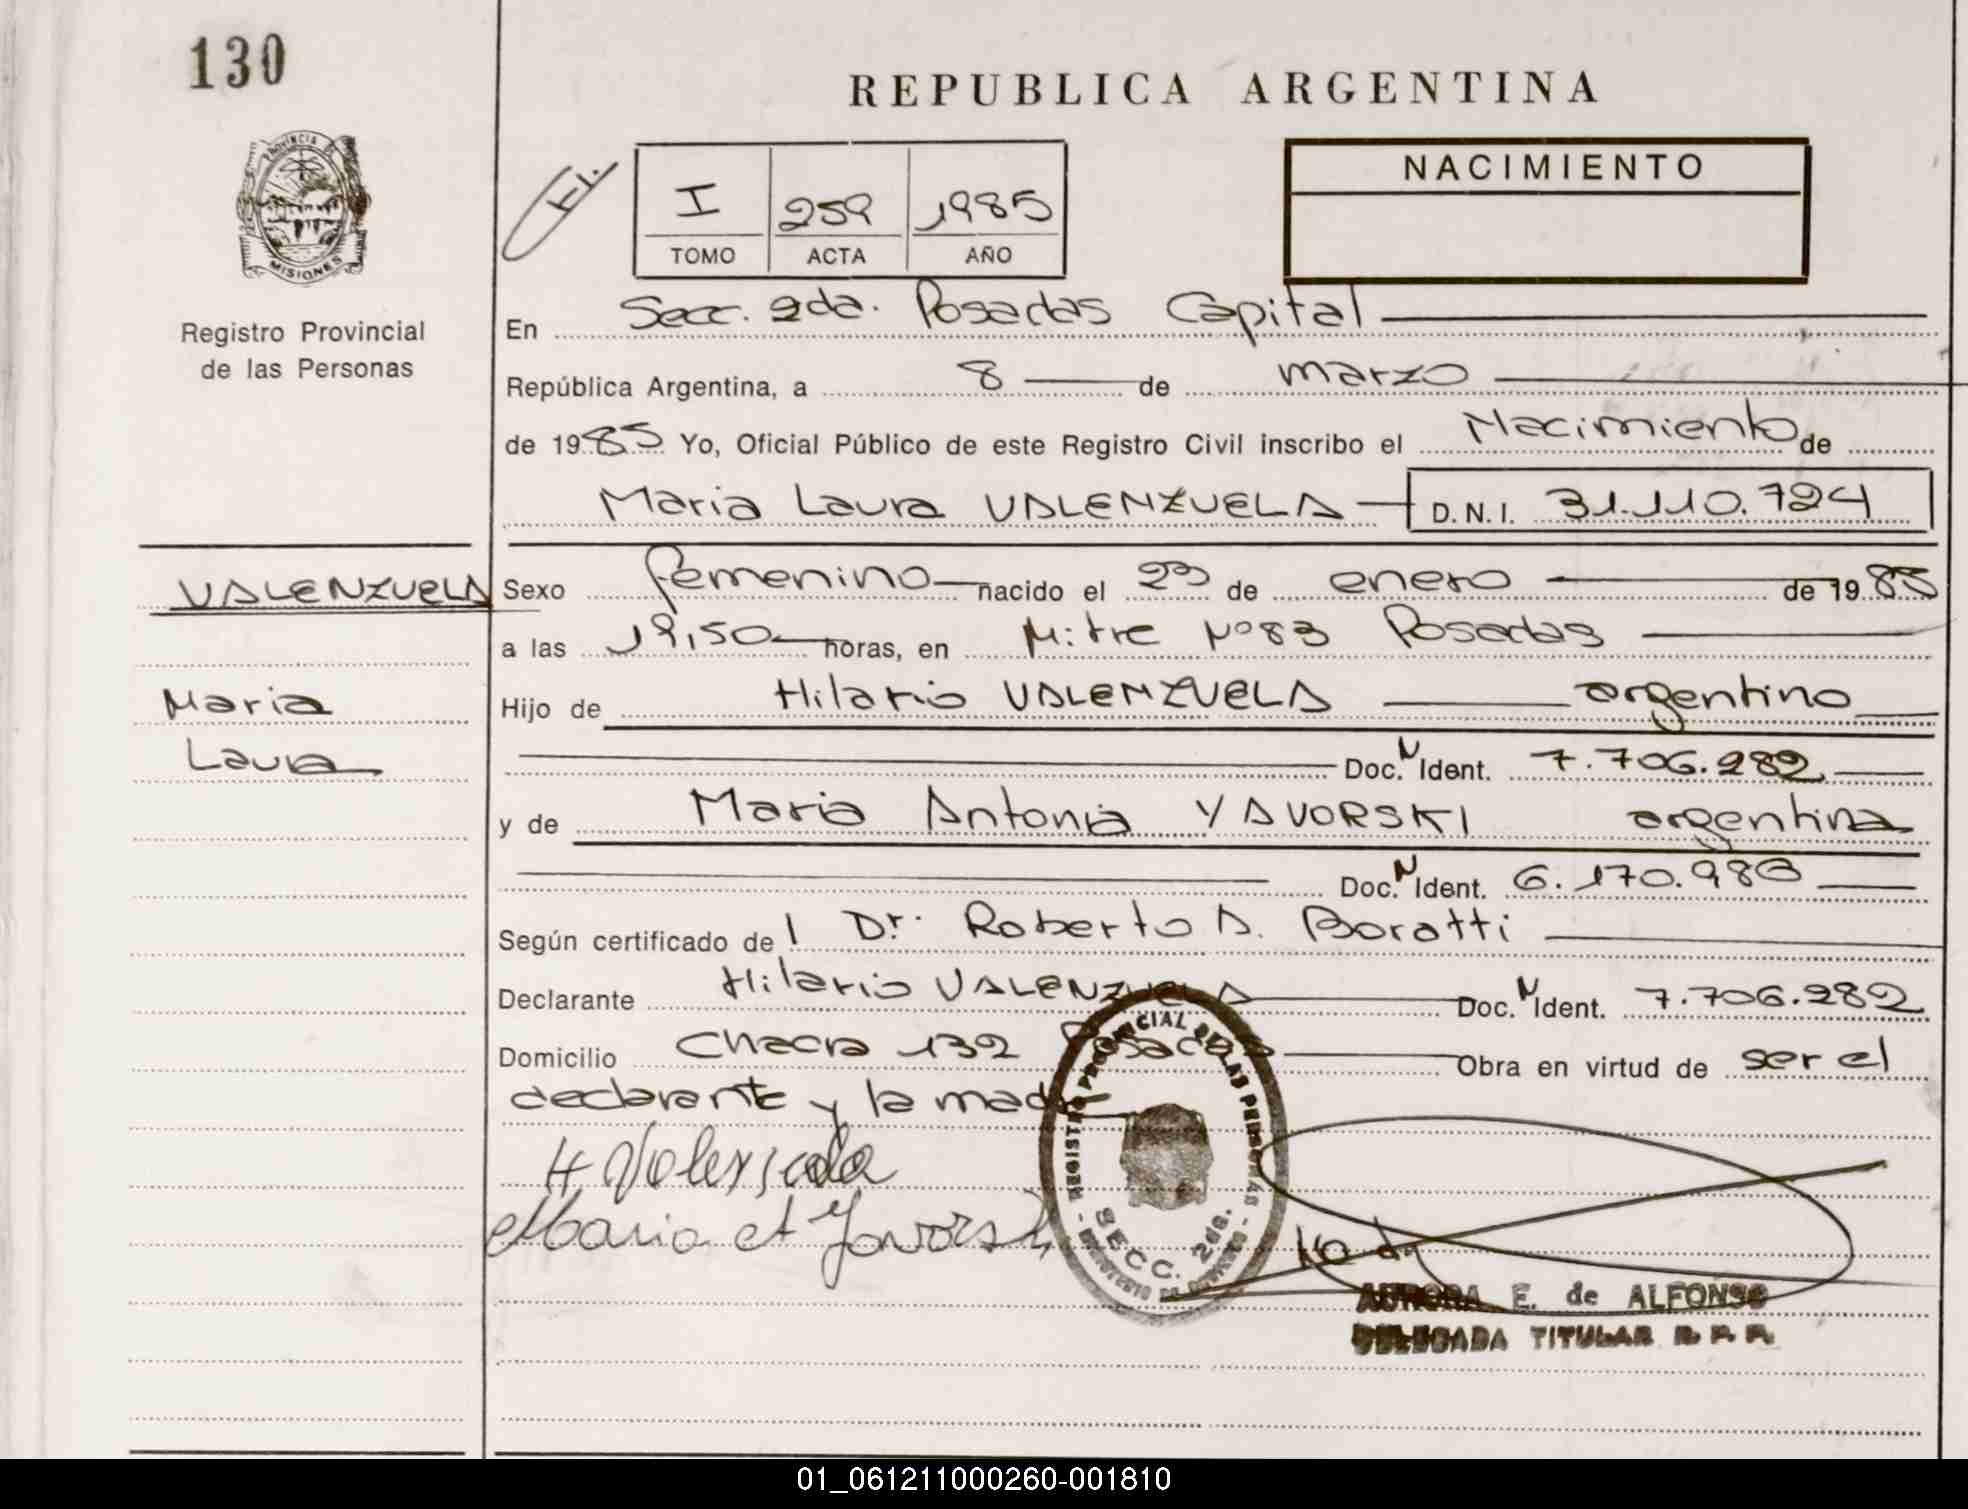 130
REPUBLICA ARGENTINA
PROVINCIA DE
MISIONES
Registro Provincial
de las Personas
I 259 1985
TOMO ACTA AÑO
NACIMIENTO
En Secc. 2da. Posadas Capital
República Argentina, a 8 de marzo
de 1985 Yo, Oficial Público de este Registro Civil inscribo el Nacimiento de
Maria Laura VALENZUELA D.N.I. 31.110.724
VALENZUELA
Maria
Laura
Sexo femenino nacido el 23 de enero de 1985
a las 19,50 horas, en Mitre Nº83 Posadas
Hijo de Hilario VALENZUELA argentino
Doc. N Ident. 7.706.282
y de Maria Antonia YAVORSKI argentina
Doc. N Ident. 6.170.980
Según certificado de l Dr. Roberto A. Boratti
Declarante Hilario VALENZUELA Doc. N Ident. 7.706.282
Domicilio Chacra 132 Posadas Obra en virtud de ser el
declarante y la madre
H Valenzuela
Maria A Yavorski
REGISTRO PROVINCIAL DE LAS PERSONAS
SECC. 2da.
AURORA E. de ALFONSO
DELEGADA TITULAR R. P. P.
01_061211000260-001810